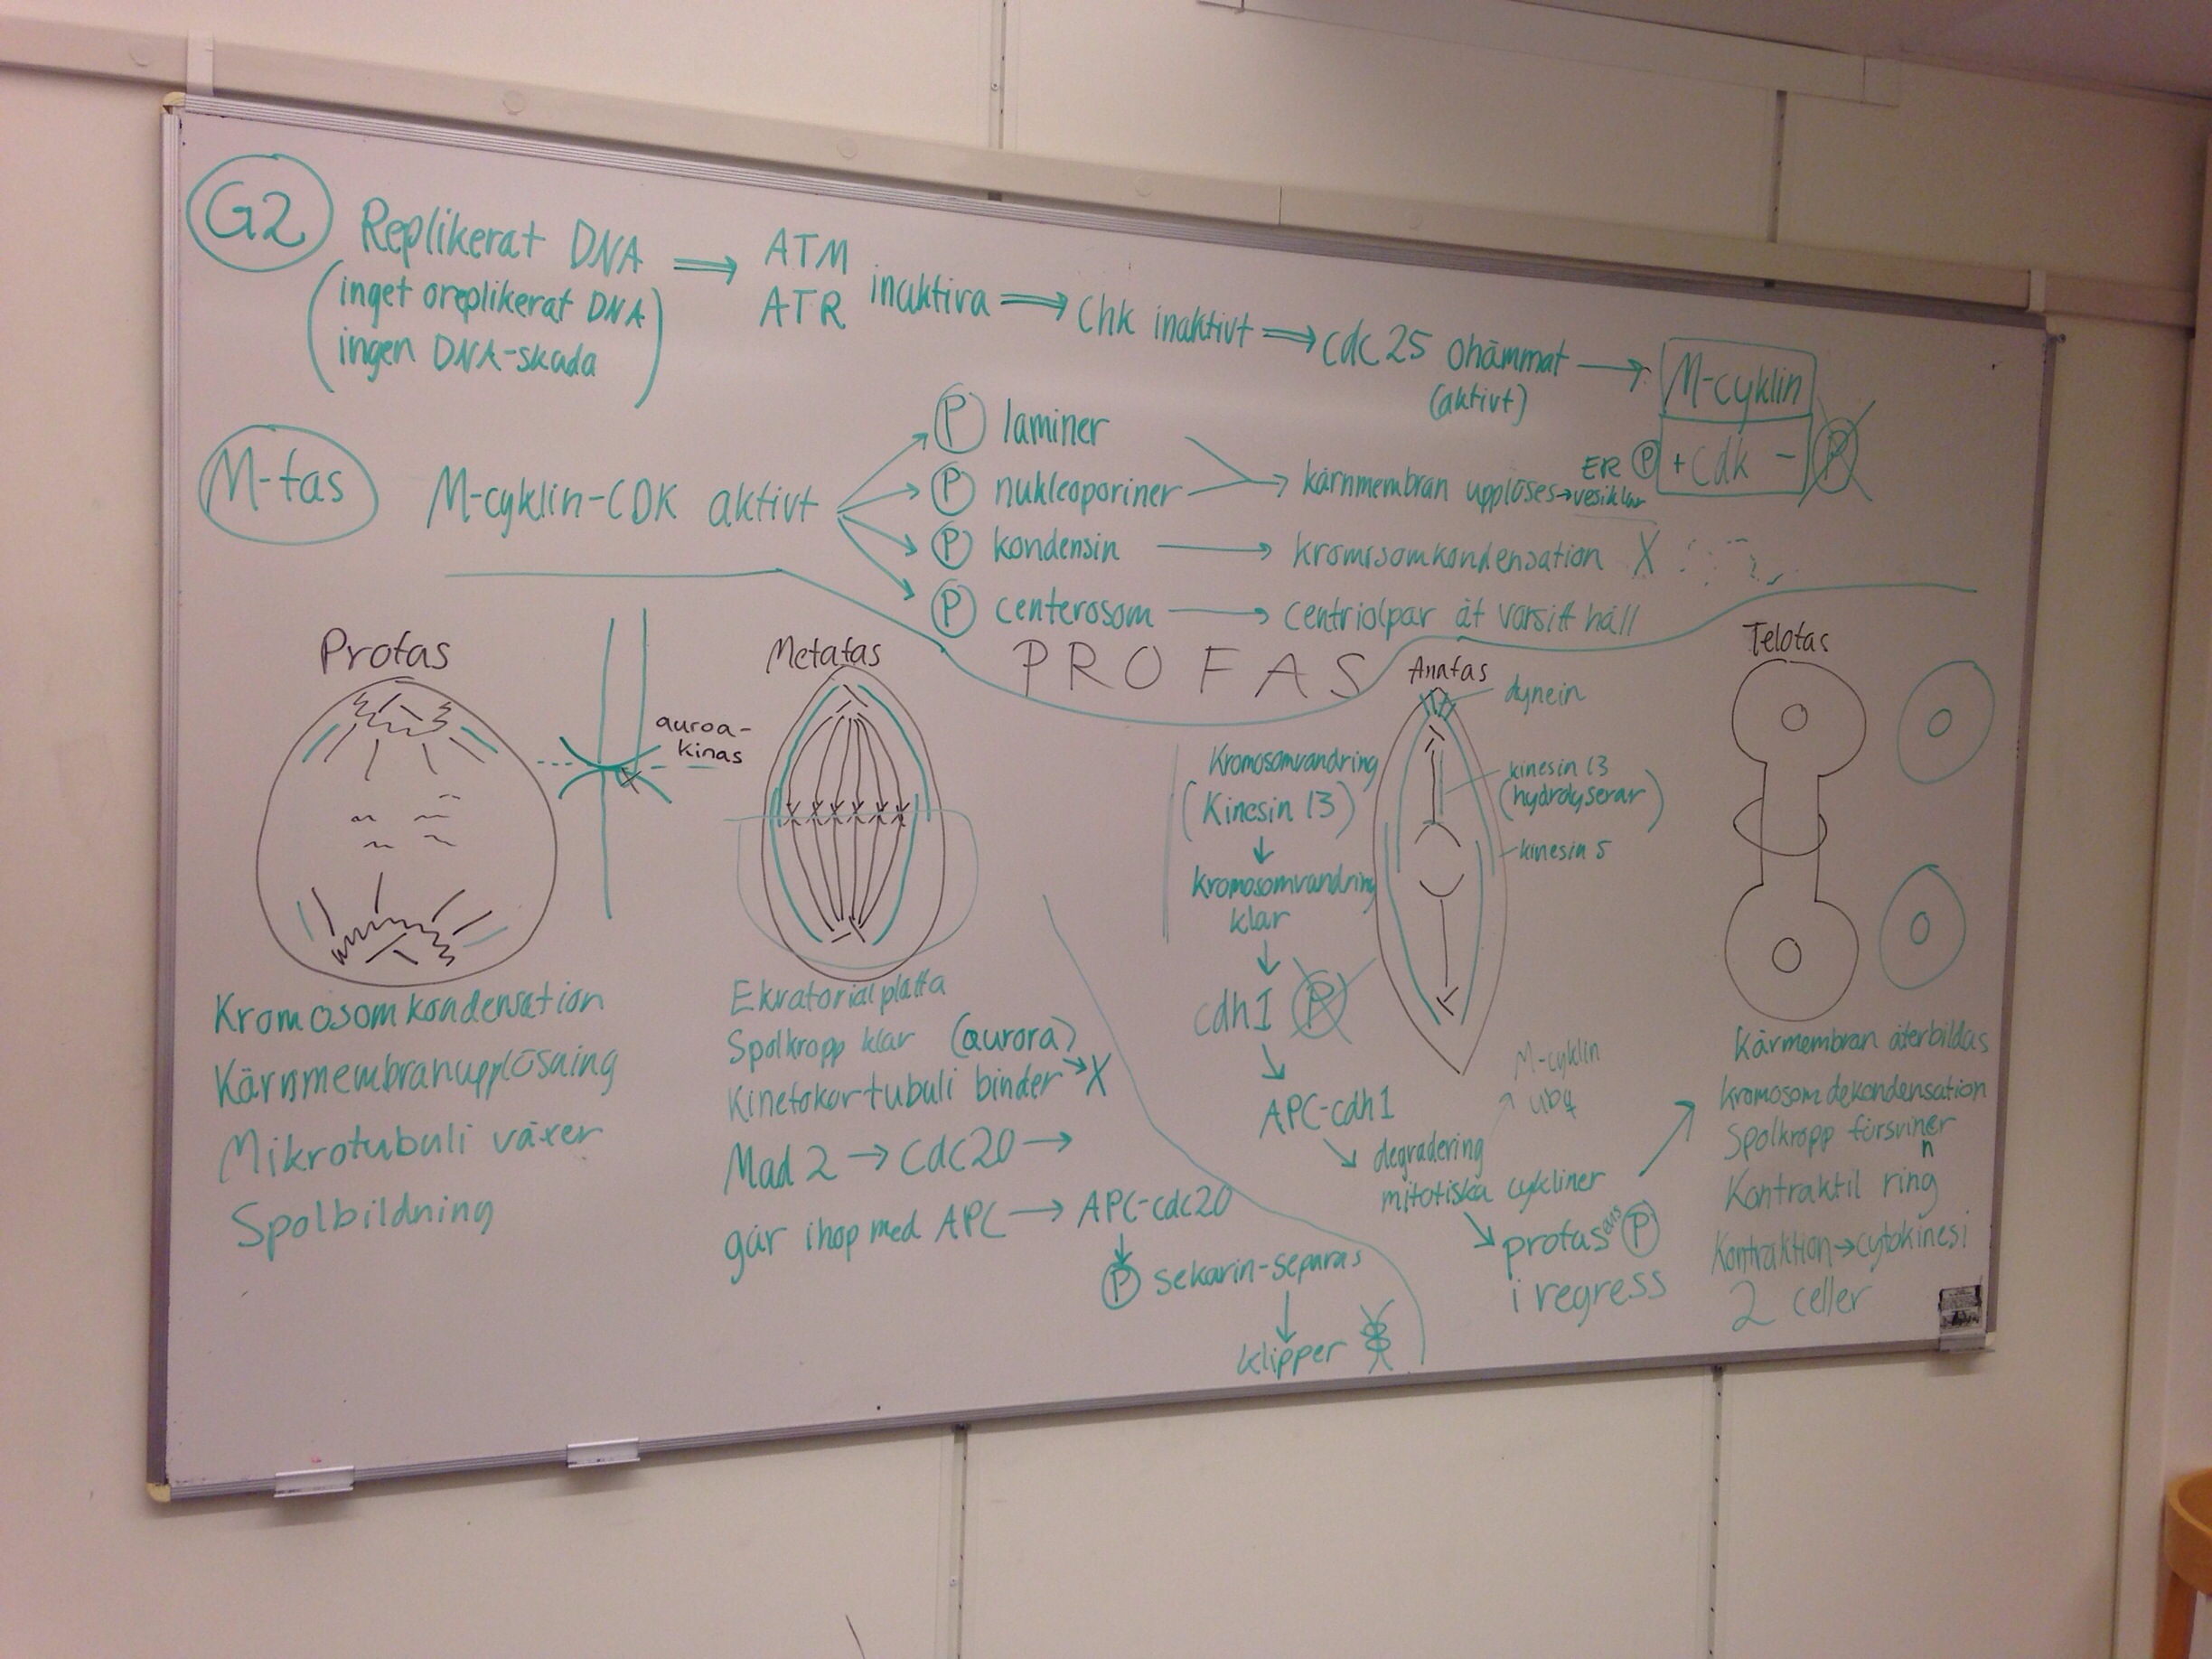 G2 Replikerat DNA ⟹ ATM ATR inaktiva ⟹ Chk inaktivt ⟹ cdc25 ohämmat → M-cyklin
(inget oreplikerat DNA
ingen DNA-skada)
(aktivt)
P + Cdk - P
M-fas M-cyklin-CDK aktivt
P laminer
P nukleoporiner → kärnmembran upplöses → ER vesiklar
P kondensin → kromosomkondensation X
P centerosom → centriolpar åt varsitt håll
PROFAS
Profas
auroa-
kinas
Kromosomkondensation
Kärnmembranupplösning
Mikrotubuli växer
Spolbildning
Metafas
Ekvatorialplatta
Spolkropp klar (aurora)
Kinetokortubuli binder → X
Mad2 → cdc20 →
går ihop med APC → APC-cdc20
↓
P sekarin-separas
↓
klipper
Anafas
dynein
kinesin 13
(hydrolyserar)
kinesin 5
Kromosomvandring
(Kinesin 13)
↓
kromosomvandring
klar
↓
cdh1 P
↘
APC-cdh1
↘
degradering
mitotiska cykliner
M-cyklin
ubq
↘
profasens P
i regress
Telofas
Kärmembran återbildas
kromosomdekondensation
Spolkropp försviner
n
Kontraktil ring
Kontraktion → cytokinesi
2 celler